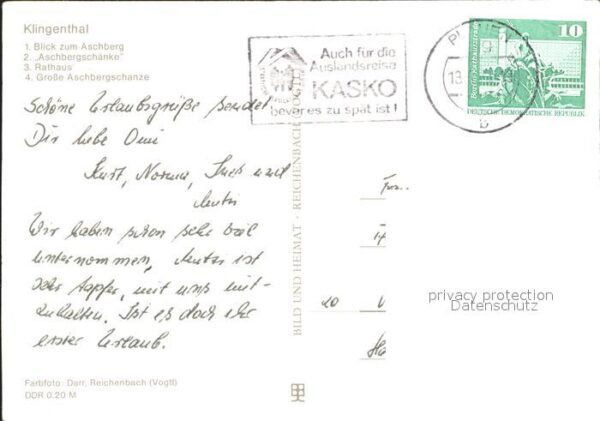 Klingenthal
1. Blick zum Aschberg
2. „Aschbergschänke"
3. Rathaus
4. Große Aschbergschanze
Auch für die
Auslandsreise
KASKO
bevor es zu spät ist!
10
Berlin, Rathausstraße
DEUTSCHE DEMOKRATISCHE REPUBLIK
13
b
Schöne Urlaubsgrüße sendet
Dir liebe Omi
Kurt, Norma, Ines und
Wir haben schon sehr viel
unternommen, ist
sehr tapfer, mit uns mit-
zuhalten. Ist es doch ihr
erster Urlaub.
BILD UND HEIMAT · REICHENBACH (VOGTL)
20
privacy protection
Datenschutz
Farbfoto: Darr, Reichenbach (Vogtl)
DDR 0.20 M